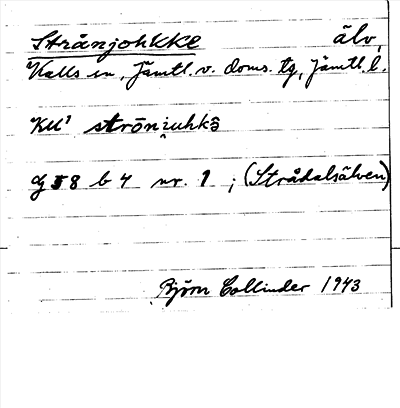 Strånjohkke älv
Kalls sn, Jämtl. v. doms. tg, Jämtl. l.
KU¹ strōni̯uhkə̑
G 58 b 4 nr. 1 ; (Strådalsälven)
Björn Collinder 1943